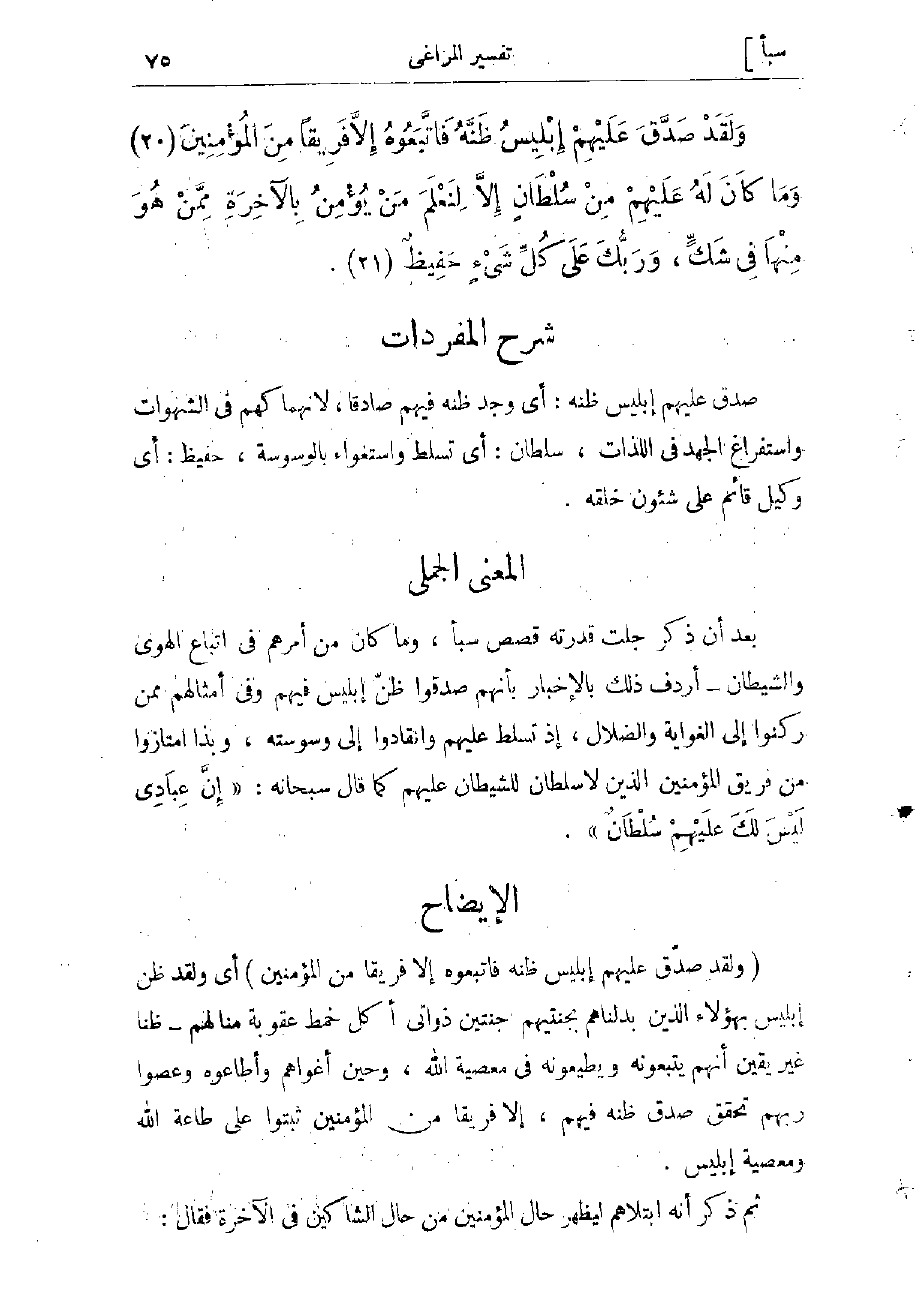 سبأ ]
تفسير المراغى
٧٥
وَلَقَدْ صَدَّقَ عَلَيْهِمْ إِبْلِيسُ ظَنَّهُ فَاتَّبَعُوهُ إِلاَّ فَرِيقاً مِنَ الْمُؤْمِنِينَ (٢٠)
وَمَا كَانَ لَهُ عَلَيْهِمْ مِنْ سُلْطَانٍ إِلاَّ لِنَعْلَمَ مَنْ يُؤْمِنُ بِالآخِرَةِ مِمَّنْ هُوَ
مِنْهَا فِى شَكٍّ ، وَرَبُّكَ عَلَى كُلِّ شَىْءٍ حَفِيظٌ (٢١) .
شرح المفردات
صدق عليهم إبليس ظنه : أى وجد ظنه فيهم صادقا ، لانهماكهم فى الشهوات
واستفراغ الجهد فى اللذات ، سلطان : أى تسلط واستغواء بالوسوسة ، حفيظ : أى
وكيل قائم على شئون خلقه .
المعنى الجملى
بعد أن ذكر جلت قدرته قصص سبأ ، وما كان من أمرهم فى اتباع الهوى
والشيطان ــ أردف ذلك بالإخبار بأنهم صدقوا ظنّ إبليس فيهم وفى أمثالهم ممن
ركنوا إلى الغواية والضلال ، إذ تسلط عليهم وانقادوا إلى وسوسته ، وبذا امتازوا
من فريق المؤمنين الذين لاسلطان للشيطان عليهم كما قال سبحانه : « إِنَّ عِبَادِى
لَيْسَ لَكَ عَلَيْهِمْ سُلْطَانٌ » .
الإيضاح
( ولقد صدّق عليهم إبليس ظنه فاتبعوه إلا فريقا من المؤمنين ) أى ولقد ظن
إبليس بهؤلاء الذين بدلناهم بجنتيهم جنتين ذواتى أكل خمط عقوبة منا لهم ــ ظنا
غير يقين أنهم يتبعونه ويطيعونه فى معصية الله ، وحين أغواهم وأطاعوه وعصوا
ربهم تحقق صدق ظنه فيهم ، إلا فريقا من المؤمنين ثبتوا على طاعة الله
ومعصية إبليس .
ثم ذكر أنه ابتلاهم ليظهر حال المؤمنين من حال الشاكين فى الآخرة فقال :